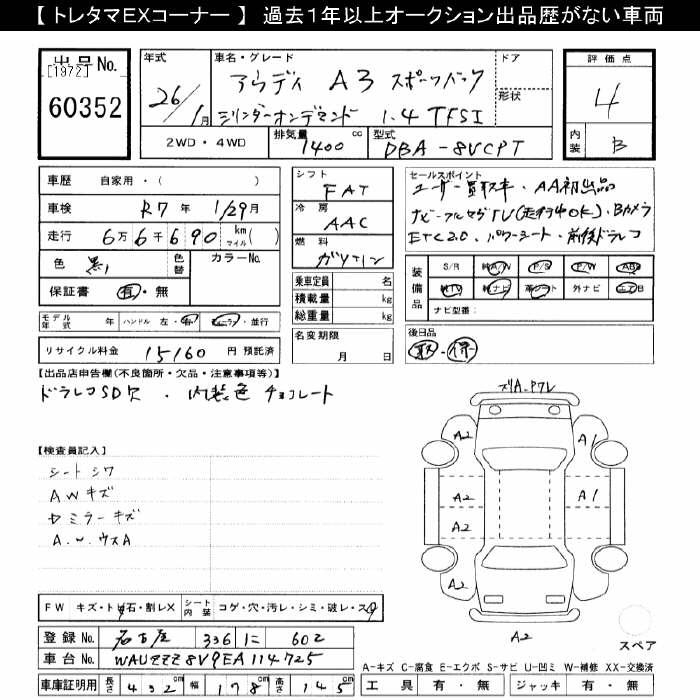 【 トレタマEXコーナー 】 過去１年以上オークション出品歴がない車両
出品 No.
[1972]
60352
年式
26/1月
車名・グレード
アウディ A3 スポーツバック
シリンダーオンデマンド 1.4 TFSI
ドア
形状
評価点
4
内装
B
2WD・4WD
排気量
1400 cc
型式
DBA-8VCPT
車歴 自家用・( )
車検 R7年 1/29月
走行 6万6千690 km マイル( )
色 黒
色替
カラーNo.
保証書 有・無
モデル年式 年
ハンドル 左・右
ディーラー・並行
リサイクル料金 15160 円 預託済
シフト
FAT
冷房
AAC
燃料
ガソリン
乗車定員 名
積載量 kg
総重量 kg
名変期限
月 日
セールスポイント
ユーザー買取車・AA初出品
ナビ・フルセグTV(走行中OK)・Bカメラ
ETC2.0・パワーシート・前後ドラレコ
装備品
S/R 純A/W P/S P/W ABS
純TV 純ナビ 革シート 外ナビ エアB
ナビ型番:
後日品
取・保
【出品店申告欄(不良箇所・欠品・注意事項等)】
ドラレコSD欠 ・ 内装色 チョコレート
【検査員記入】
シートシワ
AWキズ
ドミラーキズ
A.W.ウスA
ズリA.PクレA2
A1
A2
A1
A2
A2
A2
スペア
FW キズ・ト石・割レX
シート内装
コゲ・穴・汚レ・シミ・破レ・スレ
登録No. 名古屋 336 に 602
車台No. WAUZZZ8V9EA114725
車庫証明用 長さ 432 cm 幅 178 cm 高さ 145 cm
A-キズ C-腐食 E-エクボ S-サビ U-凹ミ W-補修 XX-交換済
工具 有・無
ジャッキ 有・無